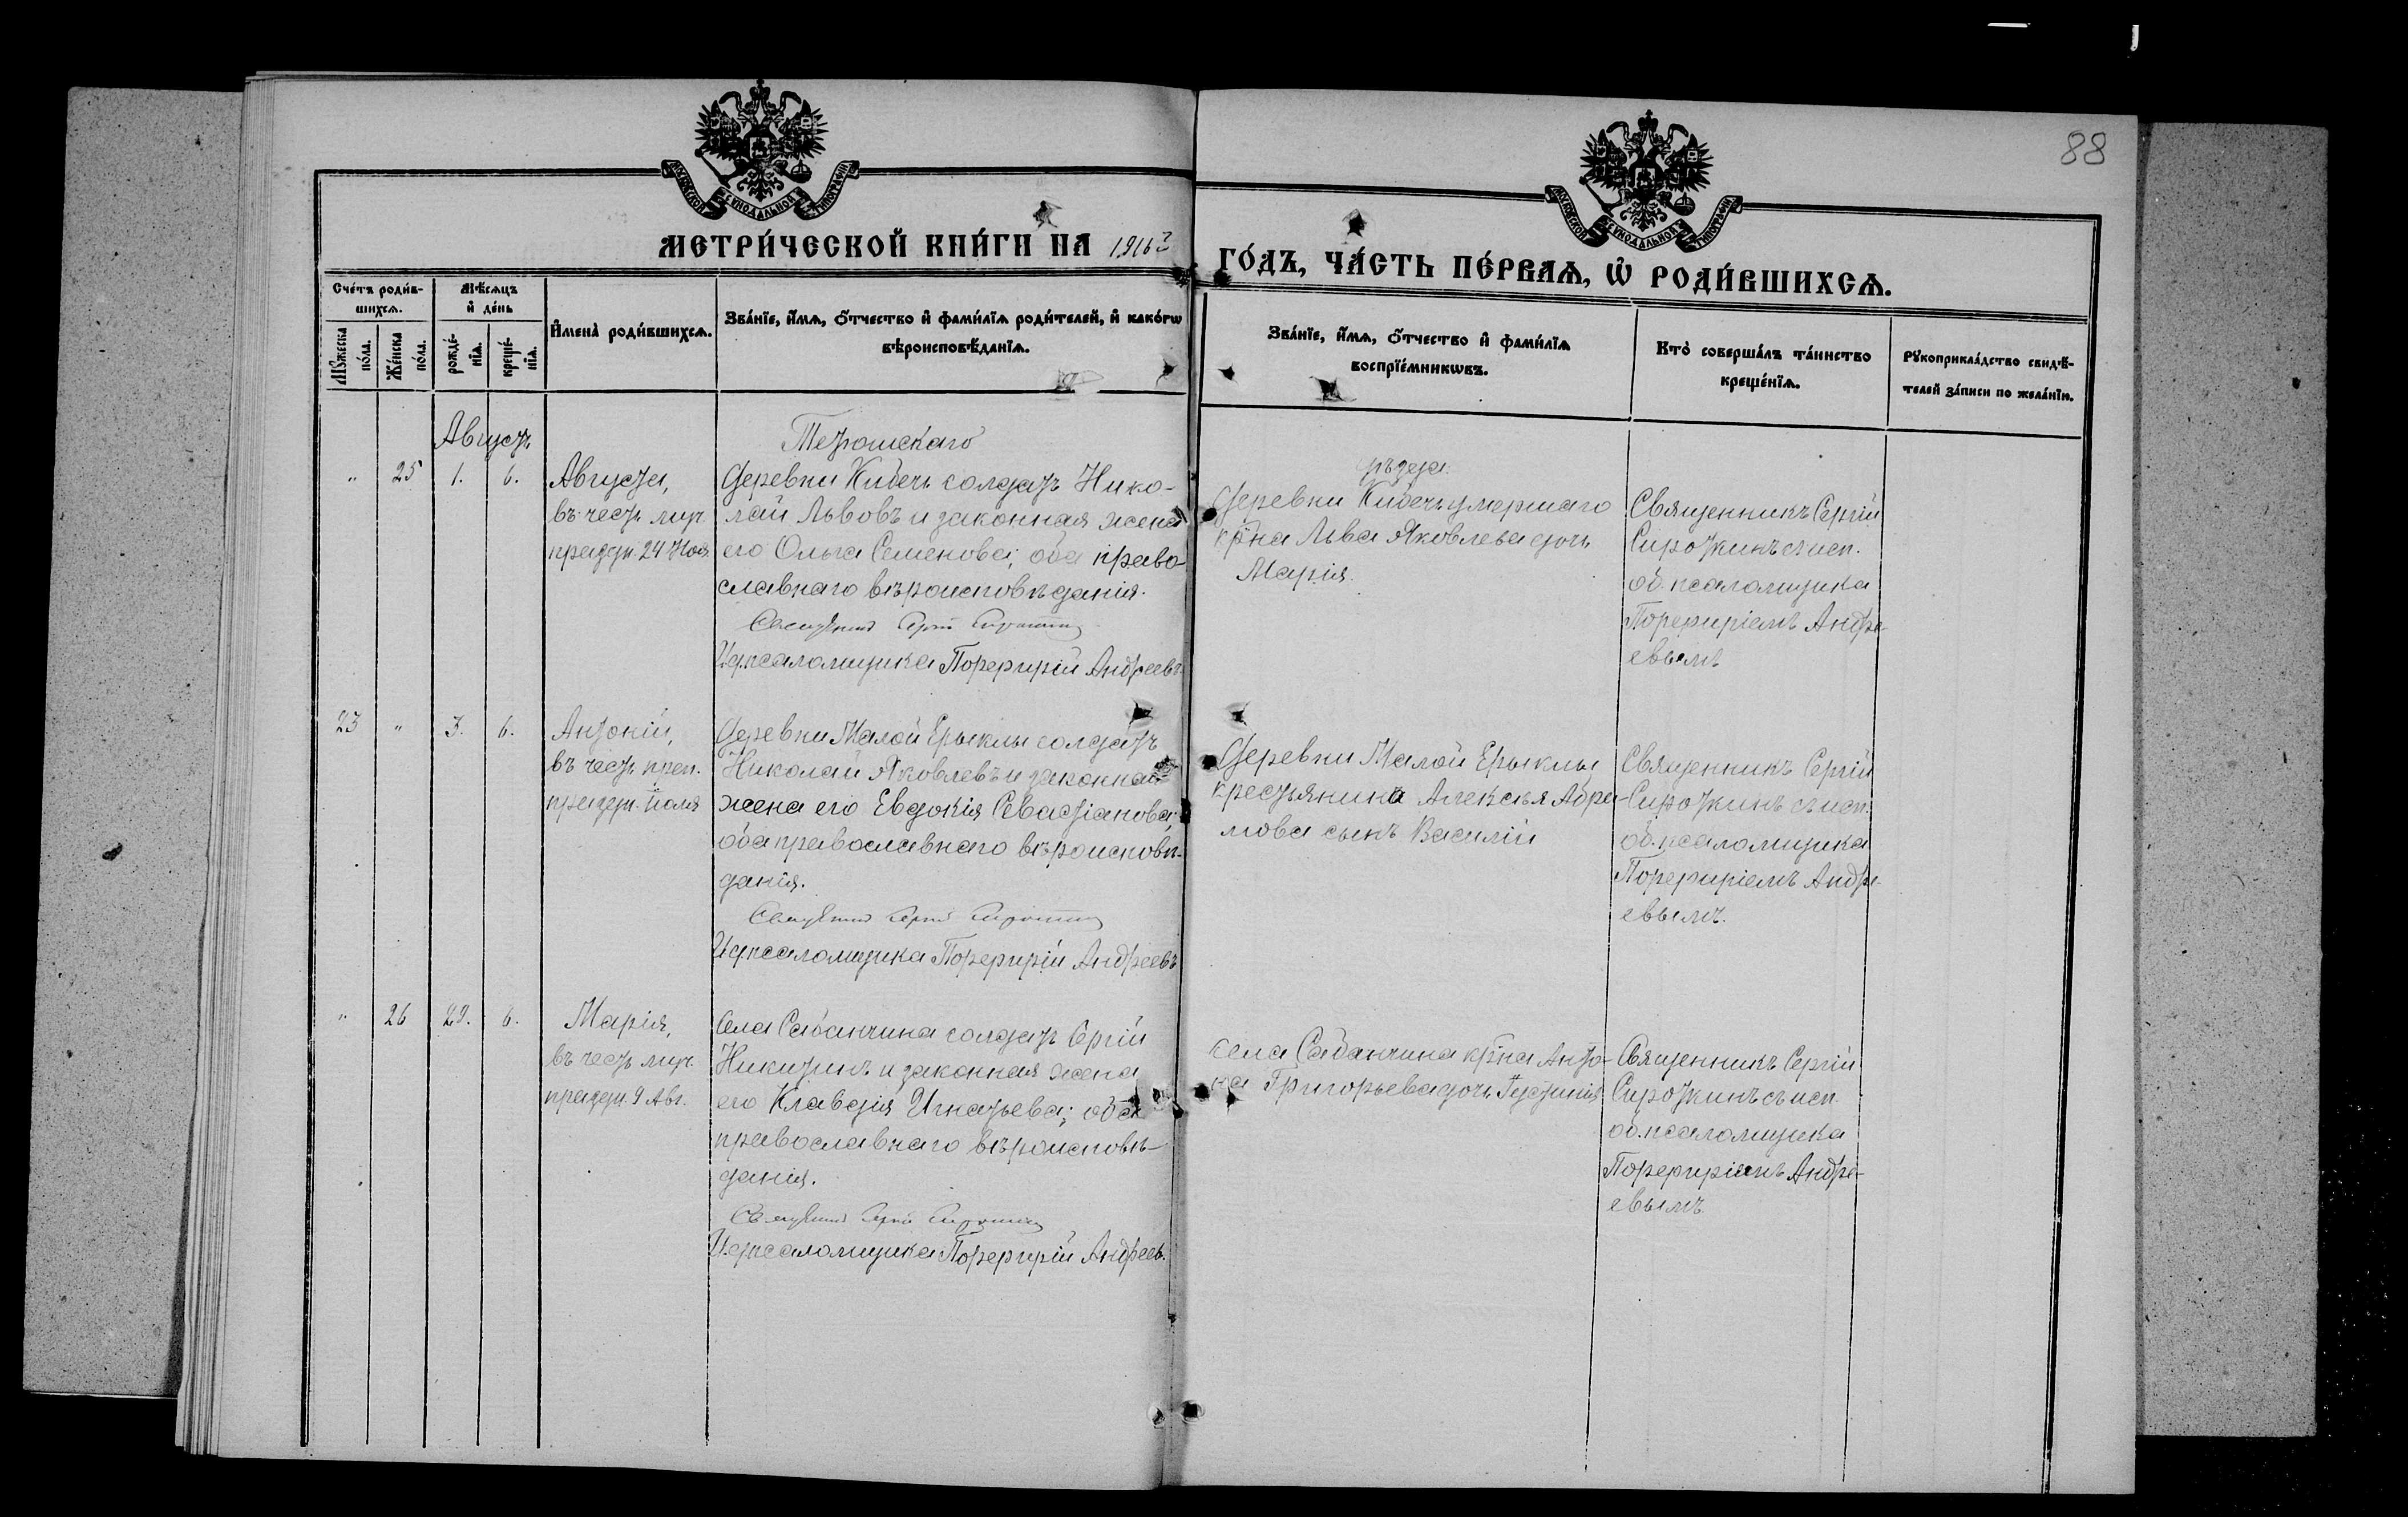 88
МОСКОВСКОЙ СѴНОДАЛЬНОЙ ТИПОГРАФІИ
МОСКОВСКОЙ СѴНОДАЛЬНОЙ ТИПОГРАФІИ
МЕТРИ́ЧЕСКОЙ КНИ́ГИ НА 1916 ГО́ДЪ, ЧА́СТЬ ПЕ́РВАѦ, Ѡ РОДИ́ВШИХСѦ.
Сче́тъ роди́в-
шихсѧ.
Мꙋ́жеска по́ла.
Же́нска по́ла.
Мѣ́сѧцъ
и҆ де́нь
рожде́-
нїѧ.
креще́-
нїѧ.
И҆мена̀ роди́вшихсѧ.
Зва́нїе, и҆́мѧ, ѻ҆́тчество и҆ фами́лїѧ роди́телей, и҆ како́гѡ
вѣроисповѣ́данїѧ.
Зва́нїе, и҆́мѧ, ѻ҆́тчество и҆ фами́лїѧ
воспрїе́мникѡвъ.
Кто̀ соверша́лъ та́инство
креще́нїѧ.
Рꙋкоприкла́дство свидѣ́-
телей за́писи по жела́нїю.
Августъ
Тетюшскаго
уѣзда:
" 25 1. 6.
Августа,
въ честь муч.
праздн. 24 Ноя.
Деревни Кибечь солдатъ Нико-
лай Львовъ и законная жена
его Ольга Семенова; оба право-
славнаго вѣроисповѣданія.
Священникъ Сергій Сироткинъ
И.д. псаломщика Порфирій Андреевъ.
Деревни Кибечь умершаго
кр-на Льва Яковлева дочь
Марія.
Священникъ Сергій
Сироткинъ съ исп.
об. псаломщика
Порфиріемъ Андре-
евымъ
23 " 3. 6.
Антоній,
въ честь преп.
праздн. Іюля
Деревни Малой Ерыклы солдатъ
Николай Яковлевъ и законная
жена его Евдокія Севастіанова;
оба православнаго вѣроисповѣ-
данія.
Священникъ Сергій Сироткинъ
И.д. псаломщика Порфирій Андреевъ
Деревни Малой Ерыклы
крестьянина Алексѣя Абра-
мова сынъ Василій
Священникъ Сергій
Сироткинъ съ исп.
об. псаломщика
Порфиріемъ Андре-
евымъ.
" 26 29. 6.
Марія,
въ честь муч.
праздн. 9 Авг.
Села Сабанчина солдатъ Сергій
Никитинъ и законная жена
его Клавдія Игнатьева; оба
православнаго вѣроисповѣ-
данія.
Священникъ Сергій Сироткинъ
И.д. псаломщика Порфирій Андреевъ.
села Сабанчина кр-на Анто-
на Григорьева дочь Іустинія
Священникъ Сергій
Сироткинъ съ исп.
об. псаломщика
Порфиріемъ Андре-
евымъ